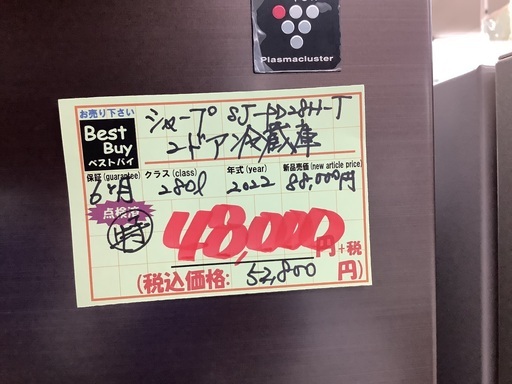 Plasmacluster
お売り下さい
Best
Buy
ベストバイ
シャープ SJ-PD28H-T
2ドア冷蔵庫
保証(guarantee) クラス(class) 年式(year) 新品売価(new article price)
6ヶ月 280l 2022 88,000円
点検済
特
48,000円+税
(税込価格: 52,800円)